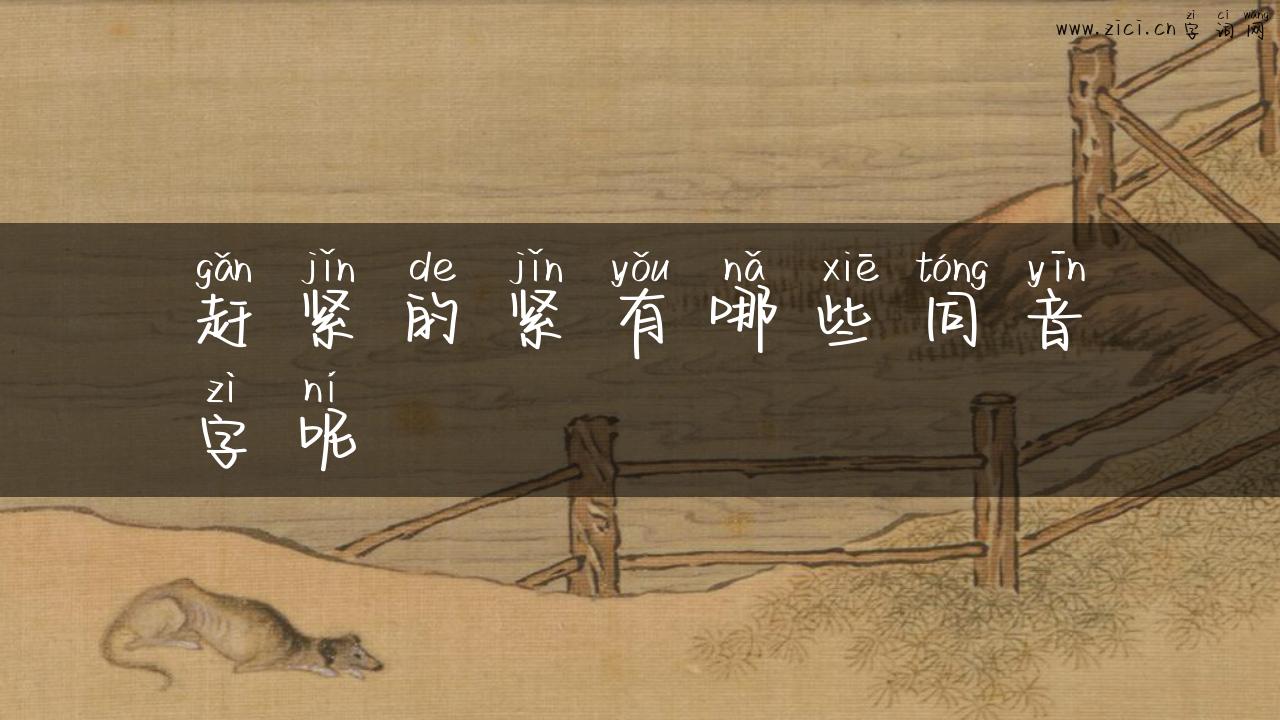 zì cí wǎng
www.zici.cn 字词网
gǎn jǐn de jǐn yǒu nǎ xiē tóng yīn
赶紧的紧有哪些同音
zì ní
字呢